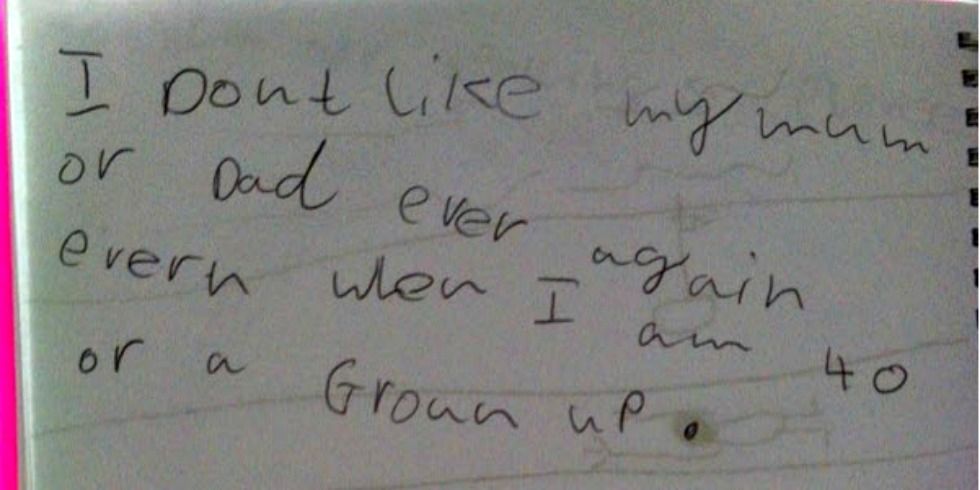 I Dont like my mum
or Dad ever again
evern when I am 40
or a Groun up.